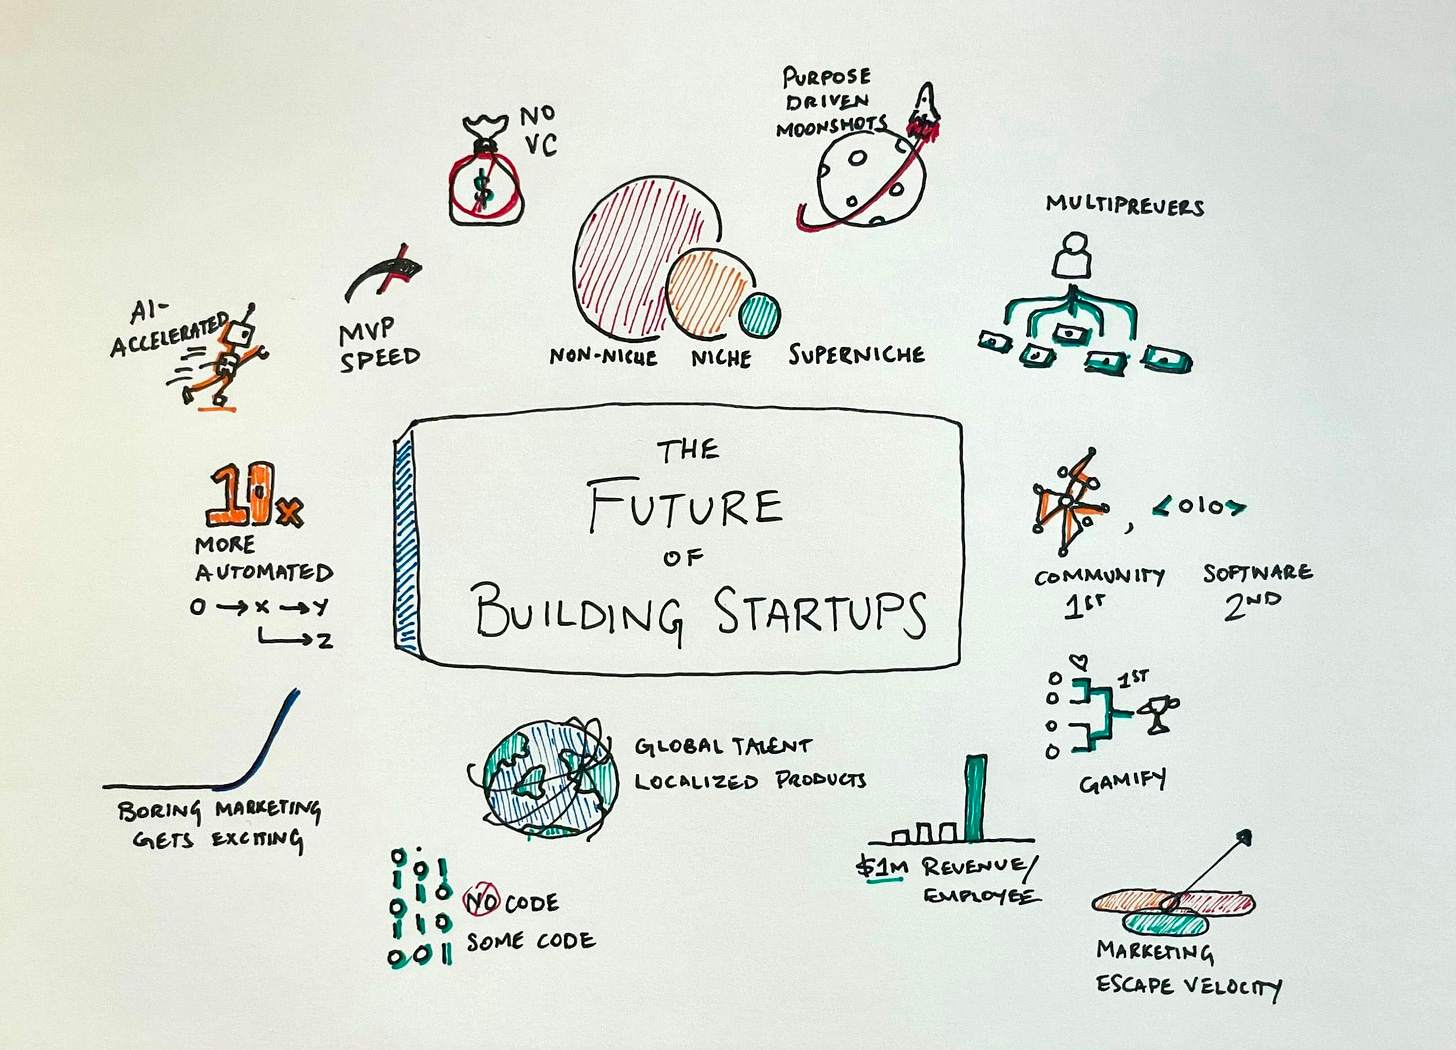 THE
FUTURE
OF
BUILDING STARTUPS
NO
VC
$
PURPOSE
DRIVEN
MOONSHOTS
MULTIPREUERS
AI-
ACCELERATED
MVP
SPEED
NON-NICHE NICHE SUPERNICHE
10x
MORE
AUTOMATED
O → X → Y
→ Z
, <010>
COMMUNITY SOFTWARE
1ST 2ND
1ST
GAMIFY
BORING MARKETING
GETS EXCITING
GLOBAL TALENT
LOCALIZED PRODUCTS
NO CODE
SOME CODE
$1M REVENUE/
EMPLOYEE
MARKETING
ESCAPE VELOCITY